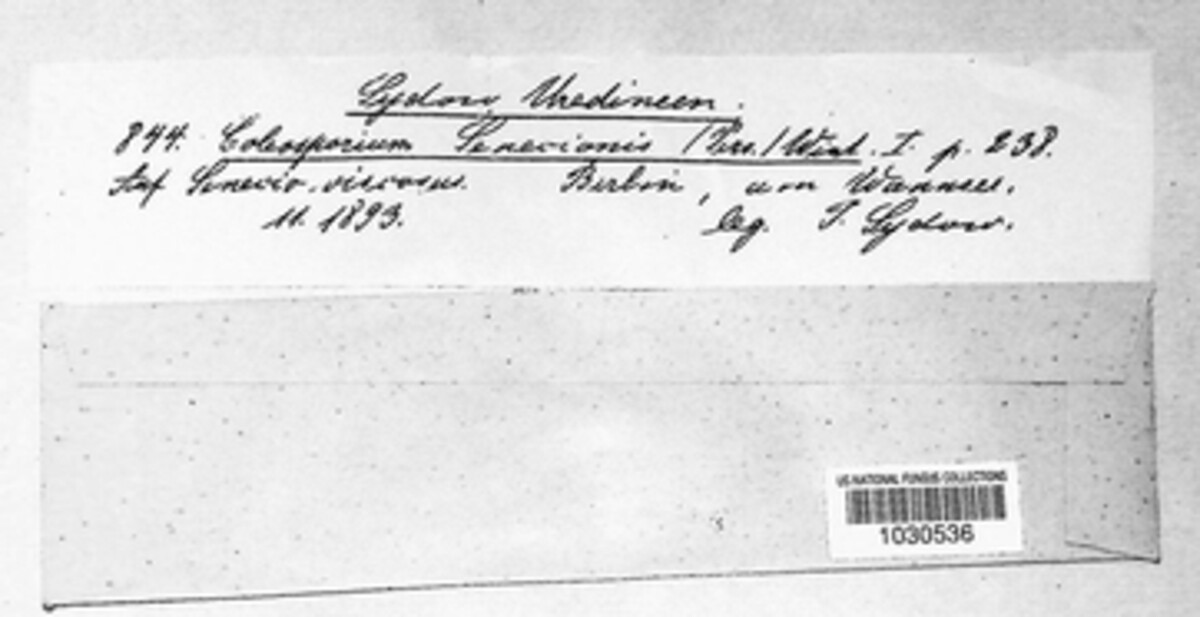 Sydow, Uredineen.
844. Coleosporium Senecionis (Pers.) Wint. I. p. 238.
Auf Senecio viscosus. Berlin, am Wannsee.
11. 1893. leg. P. Sydow.
US NATIONAL FUNGUS COLLECTIONS
1030536